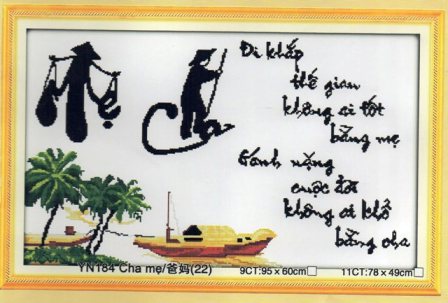 Mẹ
Cha
Đi khắp
thế gian
không ai tốt
bằng mẹ
Gánh nặng
cuộc đời
không ai khổ
bằng cha
YN184 Cha mẹ/爸妈(22)
9CT:95 x 60cm
11CT:78 x 49cm